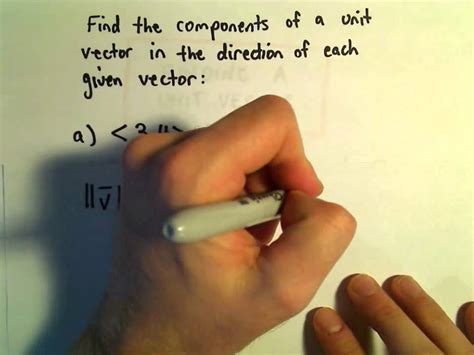 Find the components of a unit
vector in the direction of each
given vector:
a) <
||v̅|